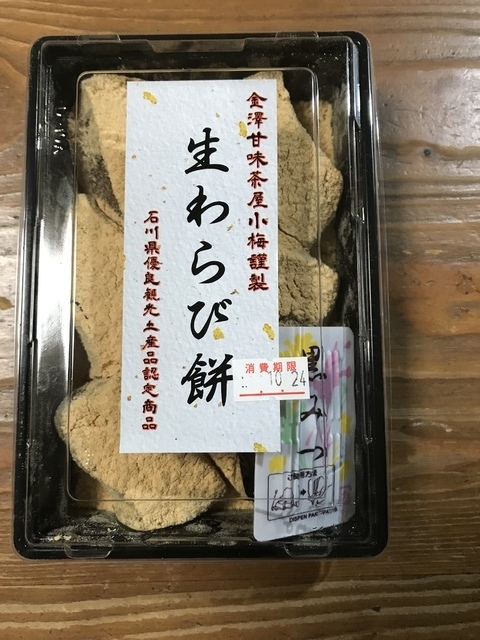 金澤甘味茶屋小梅謹製
生わらび餅
石川県優良観光土産品認定商品
消費期限
10 24
黒みつ